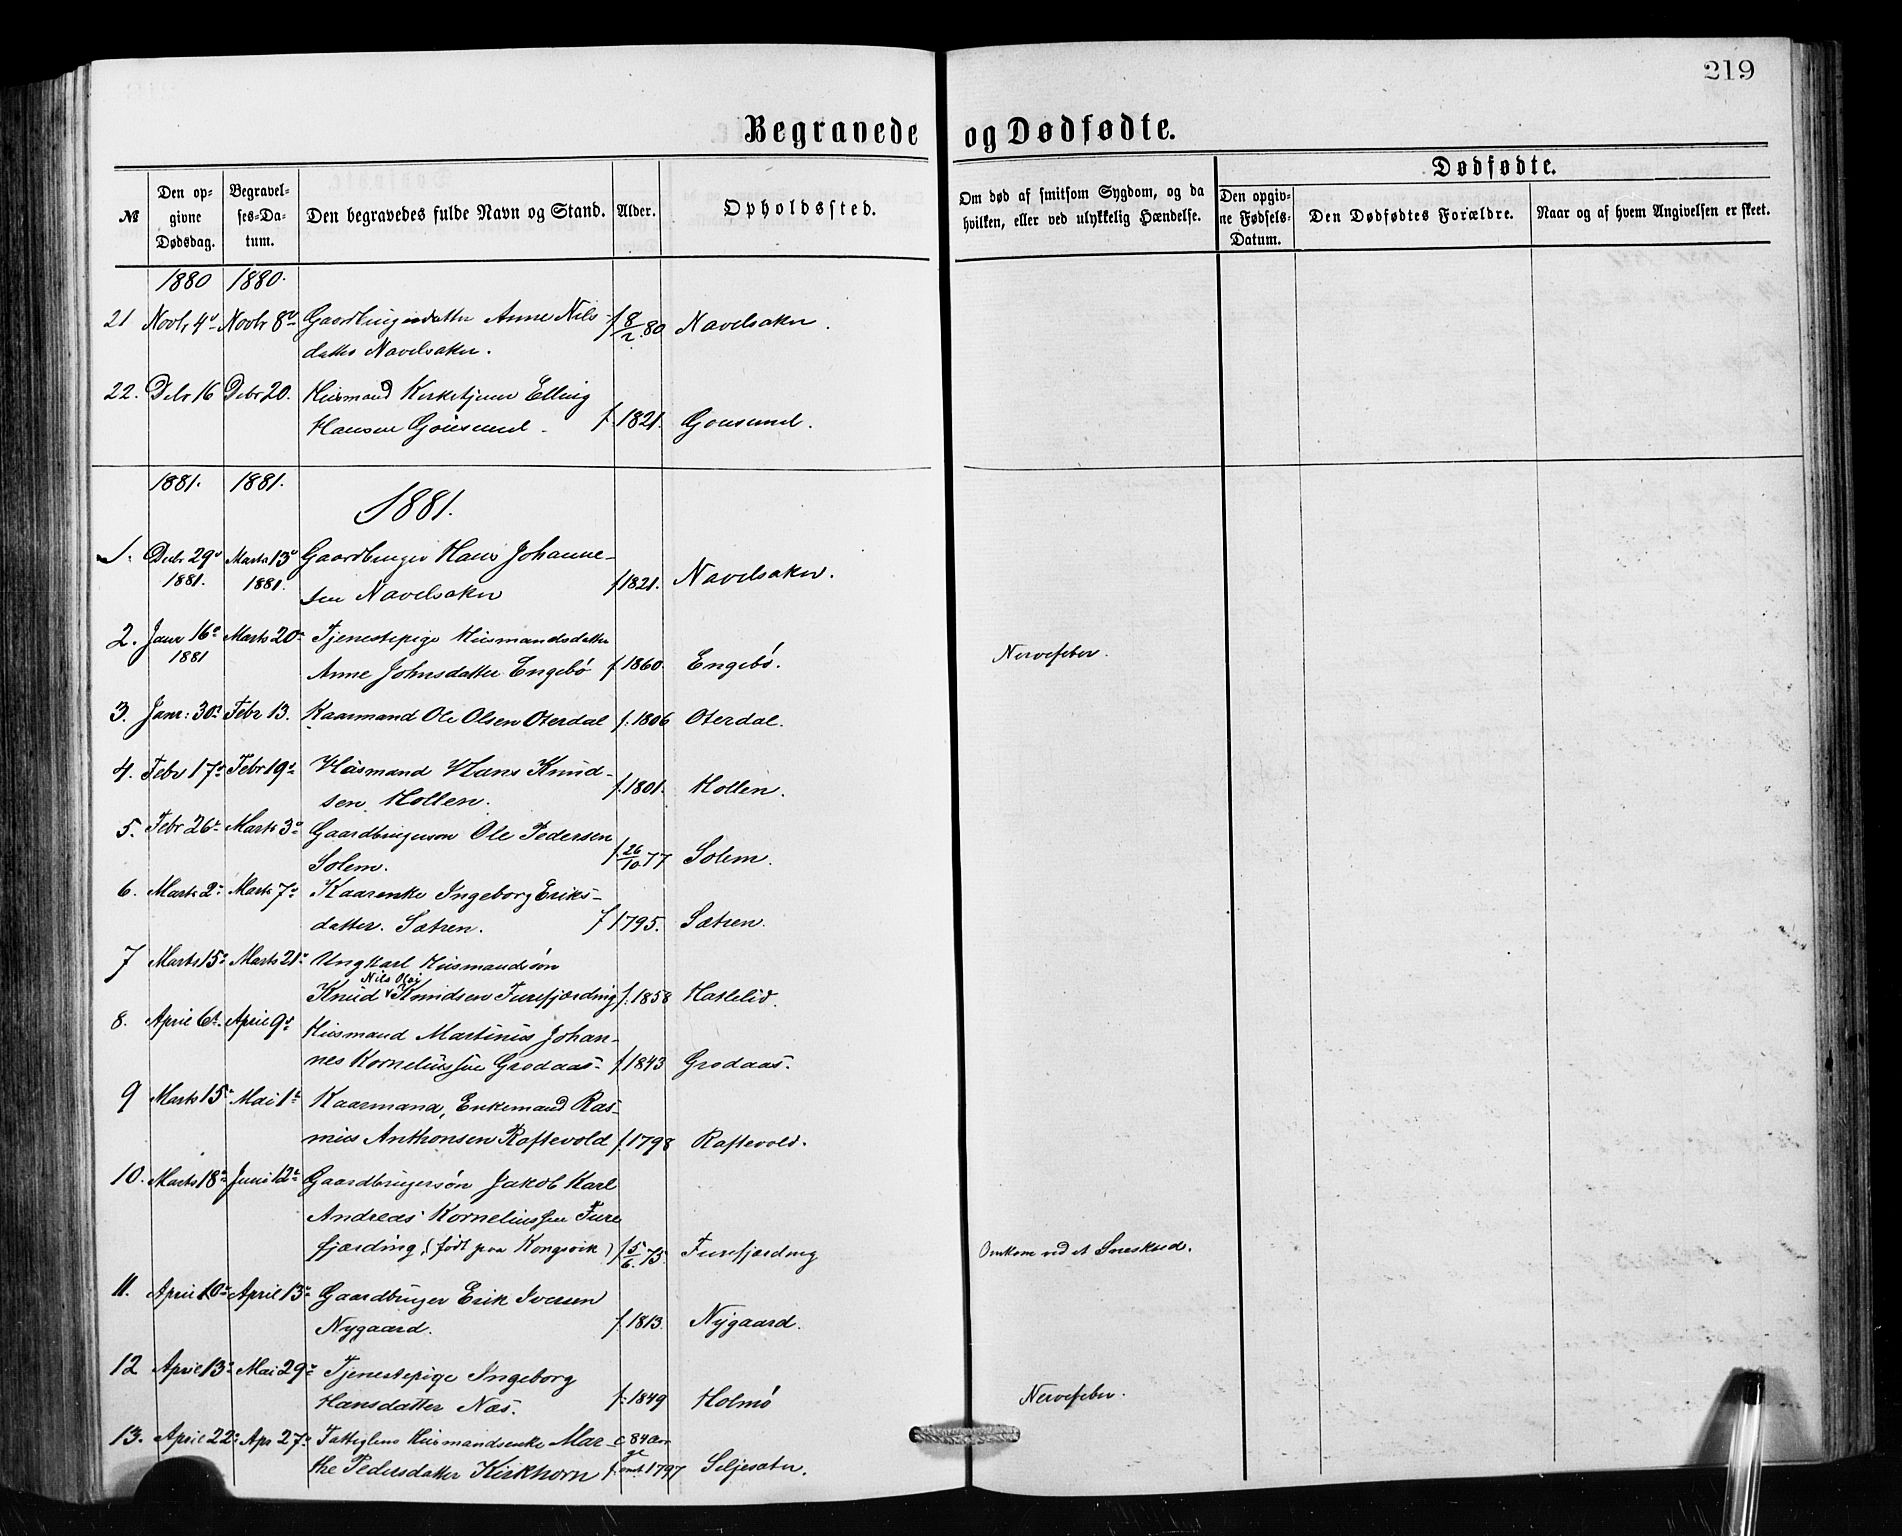 219
Begravede og Dødfødte.
№
Den opgivne Dødsdag.
Begravelses-Datum.
Den begravedes fulde Navn og Stand.
Alder.
Opholdssted.
Om død af smitsom Sygdom, og da hvilken, eller ved ulykkelig Hændelse.
Dødfødte.
Den opgivne Fødsels-Datum.
Den Dødfødtes Forældre.
Naar og af hvem Angivelsen er skeet.
1880 1880.
21 Novbr 4 Novbr 8 Gaardbrugerdatter Anne Nils- f 8/2 80 Navelsaker.
datter Navelsaker.
22. Debr 16 Debr 20. Husmand Kirketjener Elling
Hansen Gausemel. f. 1821. Gousemel.
1881. 1881.
1881.
1. Decbr 29 Marts 13 Gaardbruger Hans Johanne-
1881. 1881. sen Navelsaker f 1821. Navelsaker.
2. Janr 16 Marts 20 Tjenestepige Husmandsdatter
1881 Anne Johnsdatter Engebø f. 1860. Engebø. Nervefeber.
3. Janr: 30 Febr 13. Kaarmand Ole Olsen Oterdal f. 1806 Oterdal.
4. Febr 17 Febr 19 Husmand Hans Knud-
sen Hollen. f. 1801. Hollen.
5. Febr 26 Marts 3 Gaardbrugerson Ole Pedersen
Solem. f. 26/10 77 Solem.
6. Marts 2 Marts 7 Kaarenke Ingeborg Eriks-
datter. Sætren. f 1795. Sætren.
7 Marts 15 Marts 21 Ungkarl Husmandssøn
Nils Olai
Knud Knudsen Furefjærding f. 1858 Hatlelid.
8. April 6 April 9 Husmand Martinus Johan-
nes Korneliussen Grodaas- f. 1843 Grodaas.
9 Marts 15 Mai 1 Kaarmand, Enkemand Ras-
mus Anthonsen Raftevold f. 1798 Raftevold.
10. Marts 18 Juni 12 Gaardbrugersøn Jakob Karl
Andreas Korneliussen Fure
fjærding, (født paa Kongsvik) f 5/6 75. Furefjærding Omkom ved et Sneskred.
11. April 10 April 13 Gaardbruger Erik Iversen
Nygaard. f. 1813. Nygaard.
12 April 13 Mai 29 Tjenestepige Ingeborg
Hansdatter Næs. f. 1849 Holmø Nervefeber.
13. April 22 Apr 27 Fattiglem Husmandsenke Mar- c 84 Aar
the Pedersdatter Kirkhorn f. 1797 Seljesæter.